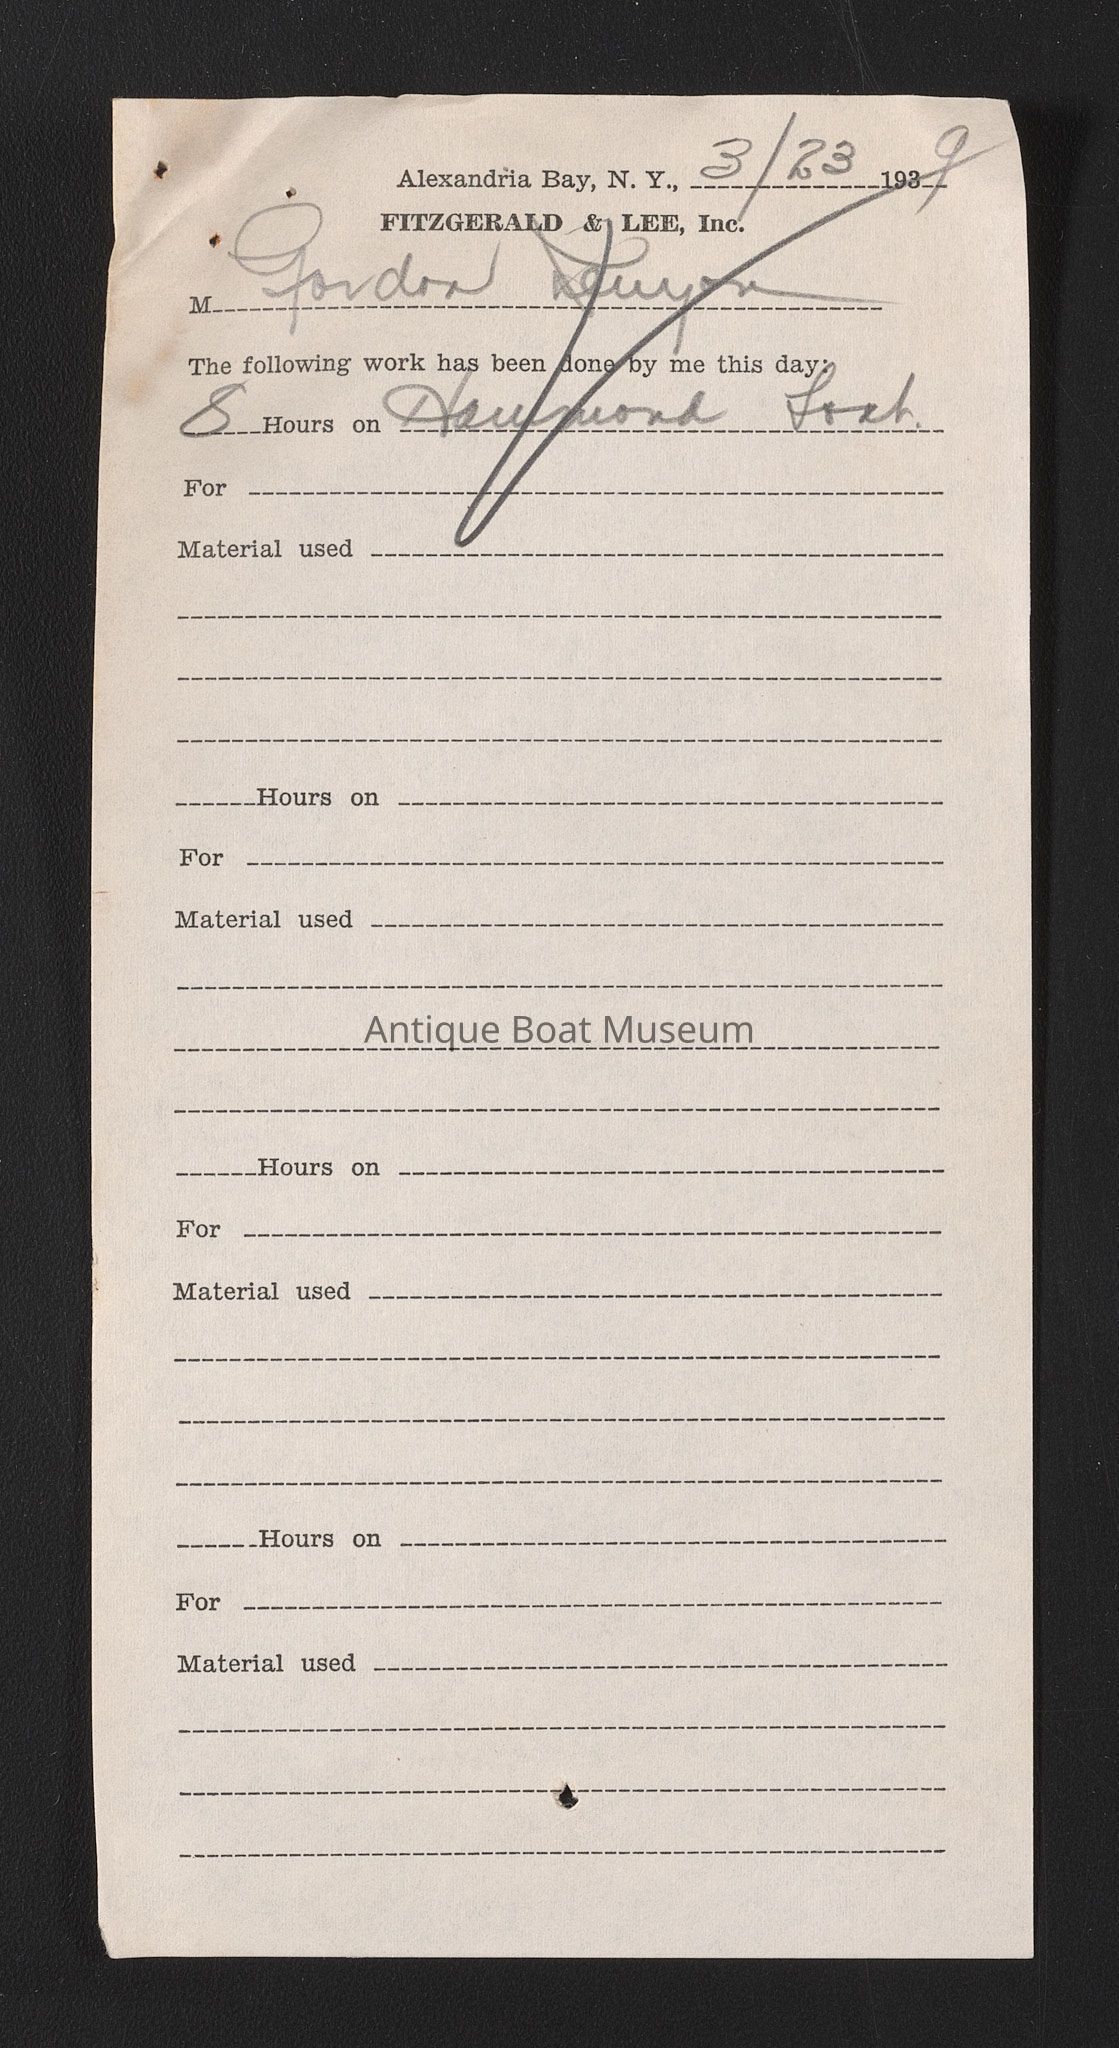 Alexandria Bay, N. Y., 3/23 1939
FITZGERALD & LEE, Inc.
M Gordon Kenyon
The following work has been done by me this day:
8 Hours on Hammond
For
Material used
Hours on
For
Material used
Antique Boat Museum
Hours on
For
Material used
Hours on
For
Material used